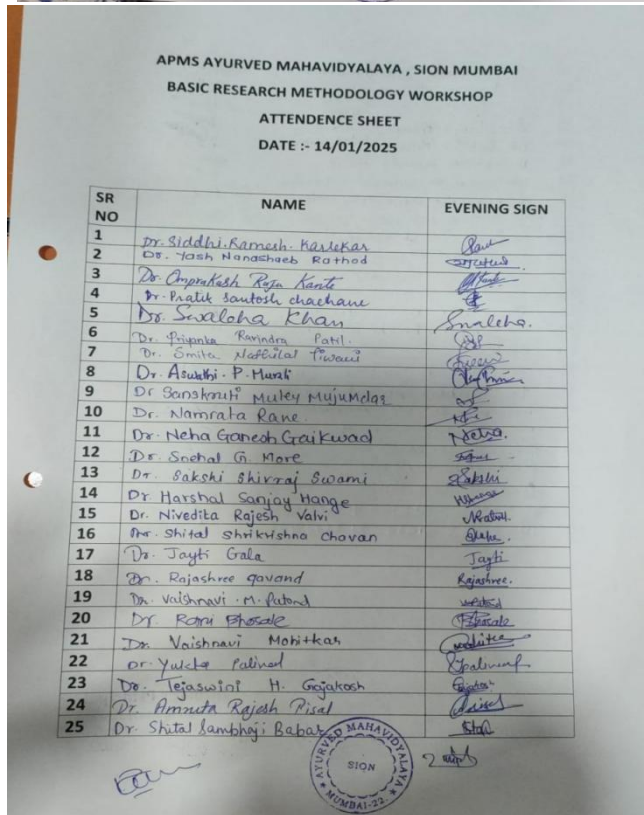 APMS AYURVED MAHAVIDYALAYA , SION MUMBAI
BASIC RESEARCH METHODOLOGY WORKSHOP
ATTENDENCE SHEET
DATE :- 14/01/2025
SR NO NAME EVENING SIGN
1 Dr. Siddhi. Ramesh. Karlekar
2 Dr. Yash Nanashaeb Rathod
3 Dr. Omprakash Raju Kante
4 Dr. Pratik Santosh chachane
5 Dr. Swaleha Khan Swaleha.
6 Dr. Priyanka Ravindra Patil.
7 Dr. Smita Tiwari
8 Dr. Aswathi . P. Murali
9 Dr Sanskruti Muley Mujumdar
10 Dr. Namrata Rane
11 Dr. Neha Ganesh Gaikwad Neha.
12 Dr. Snehal G. More
13 Dr. Sakshi Shivraj Swami Sakshi
14 Dr Harshal Sanjay Hange
15 Dr. Nivedita Rajesh Valvi
16 Dr. Shital Shrikrishna Chavan
17 Dr. Jayti Gala Jayti
18 Dr. Rajashree Gavand Rajashree.
19 Dr. Vaishnavi . M. Patond
20 Dr. Bhosale Bhosale
21 Dr. Vaishnavi Mohitkar
22 Dr. Paliwad
23 Dr. Tejaswini H. Gajakosh
24 Dr. Amruta Rajesh Pisal
25 Dr. Shital Sambhaji Babar
AYURVED MAHAVIDYALAYA
SION
MUMBAI-22.